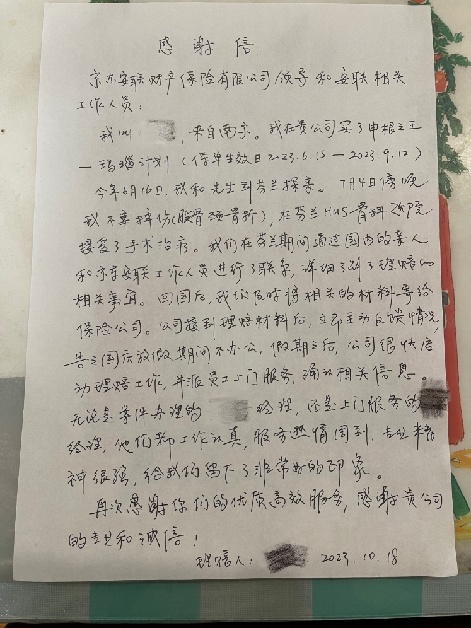 感谢信
京东安联财产保险有限公司领导和安联相关
工作人员:
我叫 ,来自南京。我在贵公司买了申根之王
一玛瑙计划(保单生效日2023.6.15—2023.9.12)
今年6月16日,我和先生到芬兰探亲。7月4日傍晚
我不慎摔伤(股骨颈骨折),在芬兰HUS骨科医院
接受了手术治疗。我们在芬兰期间通过国内的亲人
和京东安联工作人员进行了联系,详细了解了理赔的
相关事宜。回国后,我们及时将相关的材料寄给
保险公司。公司接到理赔材料后,立即主动反馈情况,
告之国庆放假期间不办公,假期之后,公司很快启
动理赔工作,并派员上门服务,通知相关信息。
无论是案件办理的 经理,还是上门服务的
经理,他们都工作认真,服务热情周到,专业精
神很强,给我们留下了非常好的印象。
再次感谢你们的优质高效服务,感谢贵公司
的 和诚信!
理赔人: 2023.10.18